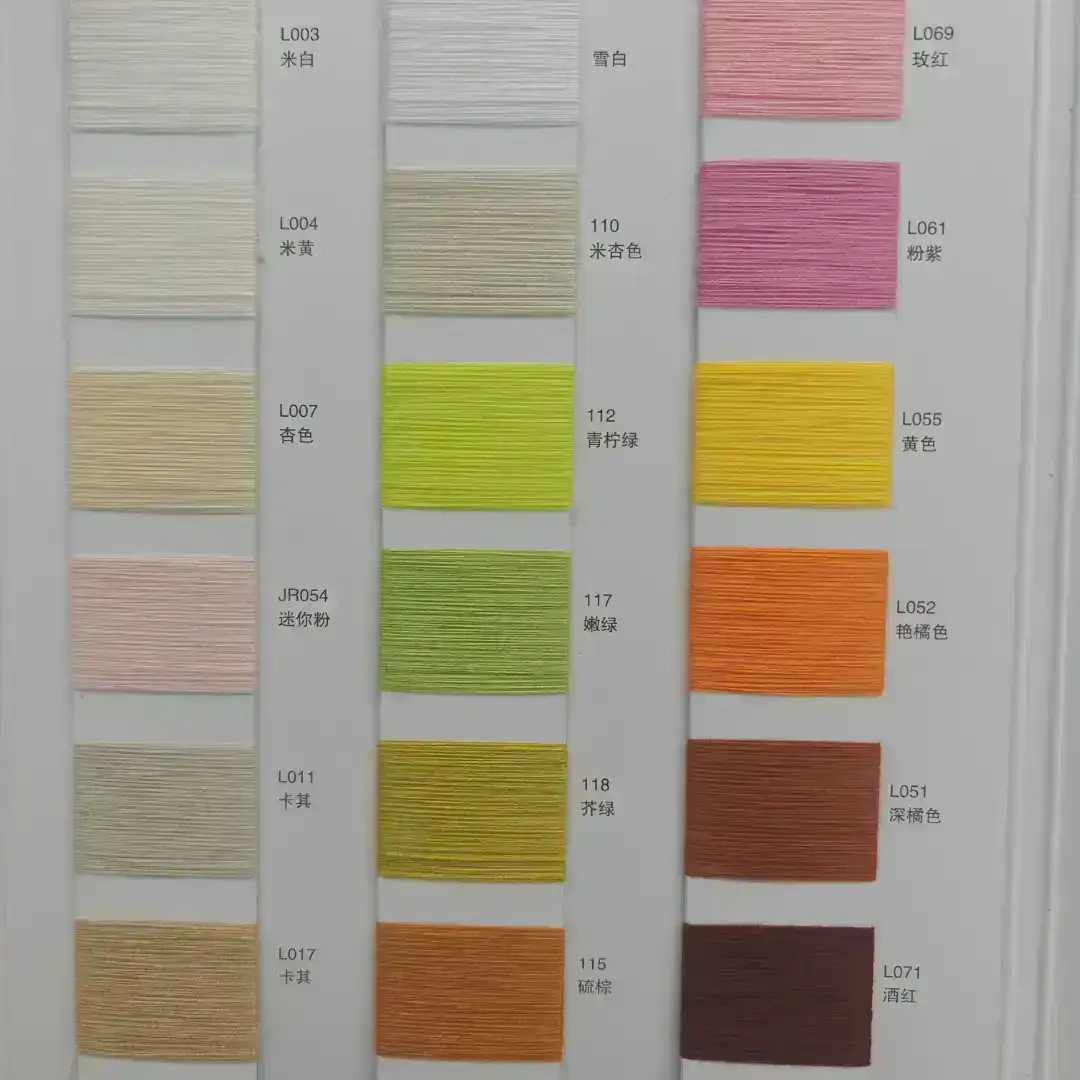 L003
米白
L004
米黄
L007
杏色
JR054
迷你粉
L011
卡其
L017
卡其
雪白
110
米杏色
112
青柠绿
117
嫩绿
118
芥绿
115
硫棕
L069
玫红
L061
粉紫
L055
黄色
L052
艳橘色
L051
深橘色
L071
酒红